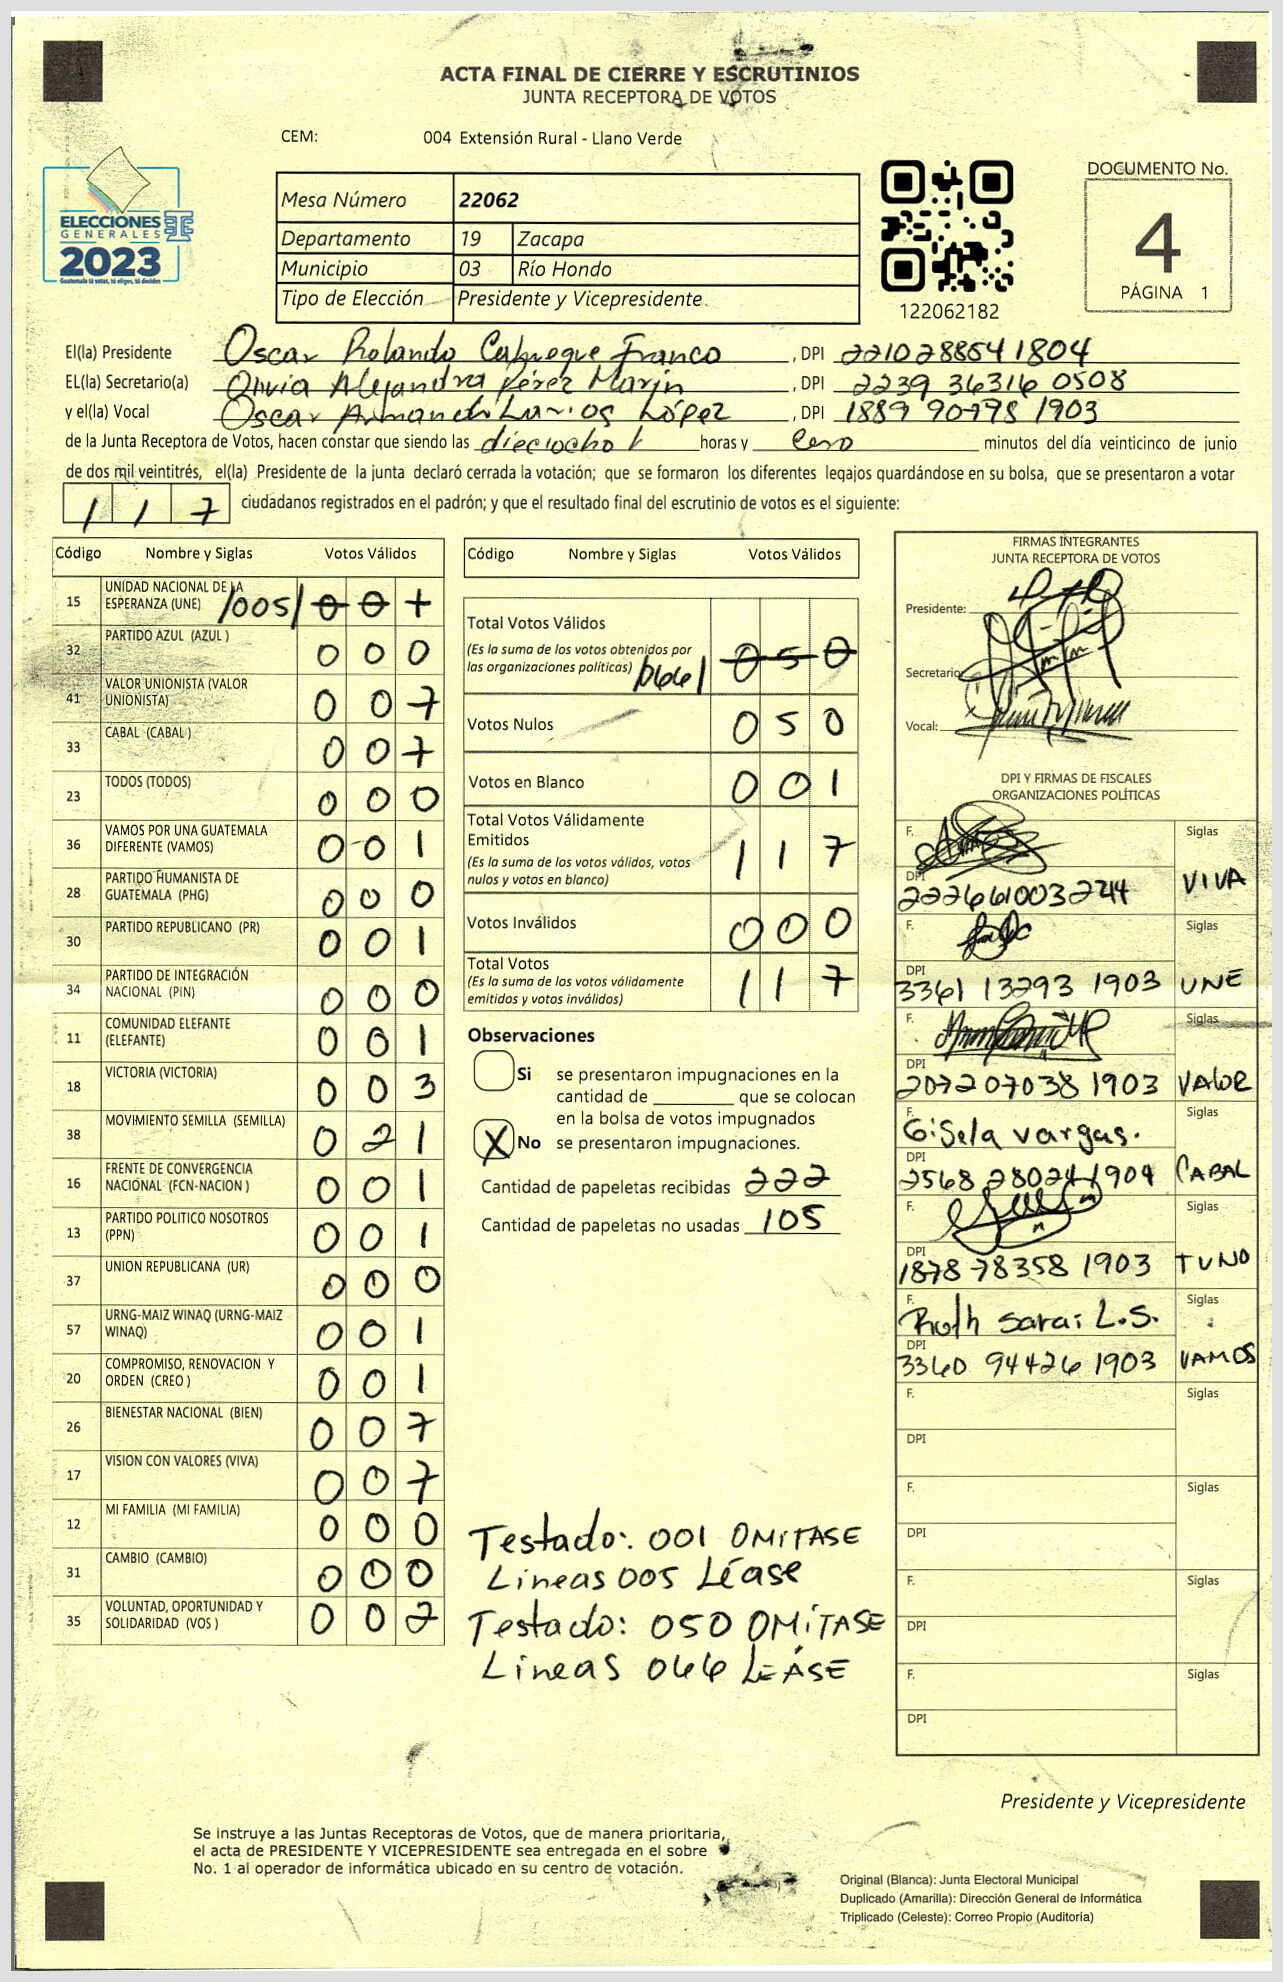 ACTA FINAL DE CIERRE Y ESCRUTINIOS
JUNTA RECEPTORA DE VOTOS
CEM: 004 Extensión Rural - Llano Verde
ELECCIONES
GENERALES
2023
Guatemala tú votas, tú eliges, tú decides
Mesa Número 22062
Departamento 19 Zacapa
Municipio 03 Río Hondo
Tipo de Elección Presidente y Vicepresidente
122062182
DOCUMENTO No.
4
PÁGINA 1
El(la) Presidente Oscar Rolando Franco, DPI
EL(la) Secretario(a) Olivia Alejandra Pérez Marín, DPI 2239 36316 0508
y el(la) Vocal Oscar Armando Larios López, DPI 1903
de la Junta Receptora de Votos, hacen constar que siendo las dieciocho horas y cero minutos del día veinticinco de junio
de dos mil veintitrés, el(la) Presidente de la junta declaró cerrada la votación; que se formaron los diferentes legajos quardándose en su bolsa, que se presentaron a votar
117 ciudadanos registrados en el padrón; y que el resultado final del escrutinio de votos es el siguiente:
Código Nombre y Siglas Votos Válidos
15 UNIDAD NACIONAL DE LA ESPERANZA (UNE) /005/ 001
32 PARTIDO AZUL (AZUL ) 000
41 VALOR UNIONISTA (VALOR UNIONISTA) 007
33 CABAL (CABAL ) 007
23 TODOS (TODOS) 000
36 VAMOS POR UNA GUATEMALA DIFERENTE (VAMOS) 001
28 PARTIDO HUMANISTA DE GUATEMALA (PHG) 000
30 PARTIDO REPUBLICANO (PR) 001
34 PARTIDO DE INTEGRACIÓN NACIONAL (PIN) 000
11 COMUNIDAD ELEFANTE (ELEFANTE) 001
18 VICTORIA (VICTORIA) 003
38 MOVIMIENTO SEMILLA (SEMILLA) 021
16 FRENTE DE CONVERGENCIA NACIONAL (FCN-NACION ) 001
13 PARTIDO POLITICO NOSOTROS (PPN) 001
37 UNION REPUBLICANA (UR) 000
57 URNG-MAIZ WINAQ (URNG-MAIZ WINAQ) 001
20 COMPROMISO, RENOVACION Y ORDEN (CREO ) 001
26 BIENESTAR NACIONAL (BIEN) 007
17 VISION CON VALORES (VIVA) 007
12 MI FAMILIA (MI FAMILIA) 000
31 CAMBIO (CAMBIO) 000
35 VOLUNTAD, OPORTUNIDAD Y SOLIDARIDAD (VOS ) 002
Código Nombre y Siglas Votos Válidos
Total Votos Válidos
(Es la suma de los votos obtenidos por
las organizaciones políticas) /066/ 050
Votos Nulos 050
Votos en Blanco 001
Total Votos Válidamente
Emitidos
(Es la suma de los votos válidos, votos
nulos y votos en blanco) 117
Votos Inválidos 000
Total Votos
(Es la suma de los votos válidamente
emitidos y votos inválidos) 117
Observaciones
Si se presentaron impugnaciones en la
cantidad de ________ que se colocan
en la bolsa de votos impugnados
X No se presentaron impugnaciones.
Cantidad de papeletas recibidas 222
Cantidad de papeletas no usadas 105
Testado: 001 OMITASE
Lineas 005 Léase
Testado: 050 OMÍTASE
Lineas 066 LEÁSE
FIRMAS INTEGRANTES
JUNTA RECEPTORA DE VOTOS
Presidente:
Secretario:
Vocal:
DPI Y FIRMAS DE FISCALES
ORGANIZACIONES POLÍTICAS
F. Siglas
DPI VIVA
F. Siglas
DPI 3361 13293 1903 UNE
F. Siglas
DPI 2072 07038 1903 VALOR
F. Gisela vargas. Siglas
DPI 2568 28024 1904 CABAL
F. Siglas
DPI 1878 78358 1903 TUNO
F. Ruth Sarai L.S. Siglas
DPI 3360 94426 1903 VAMOS
F. Siglas
DPI
F. Siglas
DPI
F. Siglas
DPI
F. Siglas
DPI
Presidente y Vicepresidente
Se instruye a las Juntas Receptoras de Votos, que de manera prioritaria,
el acta de PRESIDENTE Y VICEPRESIDENTE sea entregada en el sobre
No. 1 al operador de informática ubicado en su centro de votación.
Original (Blanca): Junta Electoral Municipal
Duplicado (Amarilla): Dirección General de Informática
Triplicado (Celeste): Correo Propio (Auditoría)